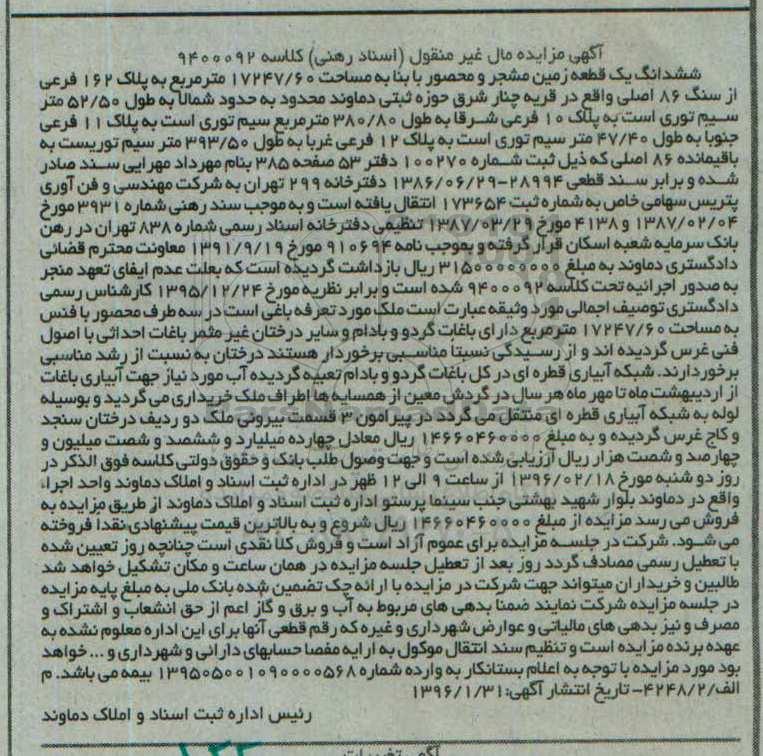 آگهی مزایده مال غیر منقول (اسناد رهنی) کلاسه ۹۴۰۰۰۹۲
ششدانگ یک قطعه زمین مشجر و محصور با بنا به مساحت ۱۷۲۴۷/۶۰ مترمربع به پلاک ۱۶۲ فرعی
از سنگ ۸۶ اصلی واقع در قریه چنار شرق حوزه ثبتی دماوند محدود به حدود شمالاً به طول ۵۲/۵۰ متر
سیم توری است به پلاک ۱۰ فرعی شرقا به طول ۳۸۰/۸۰ مترمربع سیم توری است به پلاک ۱۱ فرعی
جنوبا به طول ۴۷/۴۰ متر سیم توری است به پلاک ۱۲ فرعی غربا به طول ۳۹۳/۵۰ متر سیم توریست به
باقیمانده ۸۶ اصلی که ذیل ثبت شماره ۱۰۰۲۷۰ دفتر ۵۳ صفحه ۳۸۵ بنام مهرداد مهرایی سند صادر
شده و برابر سند قطعی ۲۸۹۹۴-۱۳۸۶/۰۶/۲۹ دفترخانه ۲۹۹ تهران به شرکت مهندسی و فن آوری
پتریس سهامی خاص به شماره ثبت ۱۷۳۶۵۴ انتقال یافته است و به موجب سند رهنی شماره ۳۹۳۱ مورخ
۱۳۸۷/۰۲/۰۴ و ۴۱۳۸ مورخ ۱۳۸۷/۰۳/۲۹ تنظیمی دفترخانه اسناد رسمی شماره ۸۳۸ تهران در رهن
بانک سرمایه شعبه اسکان قرار گرفته و بموجب نامه ۹۱۰۶۹۴ مورخ ۱۳۹۱/۹/۱۹ معاونت محترم قضائی
دادگستری دماوند به مبلغ ۳۱۵۰۰۰۰۰۰۰۰ ریال بازداشت گردیده است که بعلت عدم ایفای تعهد منجر
به صدور اجرائیه تحت کلاسه ۹۴۰۰۰۹۲ شده است و برابر نظریه مورخ ۱۳۹۵/۱۲/۲۴ کارشناس رسمی
دادگستری توصیف اجمالی مورد وثیقه عبارت است ملک مورد تعرفه باغی است در سه طرف محصور با فنس
به مساحت ۱۷۲۴۷/۶۰ مترمربع دارای باغات گردو و بادام و سایر درختان غیر مثمر باغات احداثی با اصول
فنی غرس گردیده اند و از رسیدگی نسبتا مناسبی برخوردار هستند درختان به نسبت از رشد مناسبی
برخوردارند. شبکه آبیاری قطره ای در کل باغات گردو و بادام تعبیه گردیده آب مورد نیاز جهت آبیاری باغات
از اردیبهشت ماه تا مهر ماه هر سال در گردش معین از همسایه ها اطراف ملک خریداری می گردید و بوسیله
لوله به شبکه آبیاری قطره ای منتقل می گردد در پیرامون ۳ قسمت بیرونی ملک دو ردیف درختان سنجد
و کاج غرس گردیده و به مبلغ ۱۴۶۶۰۴۶۰۰۰۰ ریال معادل چهارده میلیارد و ششصد و شصت میلیون و
چهارصد و شصت هزار ریال ارزیابی شده است و جهت وصول طلب بانک و حقوق دولتی کلاسه فوق الذکر در
روز دو شنبه مورخ ۱۳۹۶/۰۲/۱۸ از ساعت ۹ الی ۱۲ ظهر در اداره ثبت اسناد و املاک دماوند واحد اجراء
واقع در دماوند بلوار شهید بهشتی جنب سینما پرستو اداره ثبت اسناد و املاک دماوند از طریق مزایده به
فروش می رسد مزایده از مبلغ ۱۴۶۶۰۴۶۰۰۰۰ ریال شروع و به بالاترین قیمت پیشنهادی نقدا فروخته
می شود. شرکت در جلسه مزایده برای عموم آزاد است و فروش کلا نقدی است چنانچه روز تعیین شده
با تعطیل رسمی مصادف گردد روز بعد از تعطیل جلسه مزایده در همان ساعت و مکان تشکیل خواهد شد
طالبین و خریداران میتواند جهت شرکت در مزایده با ارائه چک تضمین شده بانک ملی به مبلغ پایه مزایده
در جلسه مزایده شرکت نمایند ضمنا بدهی های مربوط به آب و برق و گاز اعم از حق انشعاب و اشتراک و
مصرف و نیز بدهی های مالیاتی و عوارض شهرداری و غیره که رقم قطعی آنها برای این اداره معلوم نشده به
عهده برنده مزایده است و تنظیم سند انتقال موکول به ارایه مفصا حسابهای دارائی و شهرداری و ... خواهد
بود مورد مزایده با توجه به اعلام بستانکار به وارده شماره ۱۳۹۵۰۵۰۰۱۰۹۰۰۰۰۵۶۸ بیمه می باشد. م
الف/۴۲۴۸/۲- تاریخ انتشار آگهی: ۱۳۹۶/۱/۳۱
رئیس اداره ثبت اسناد و املاک دماوند